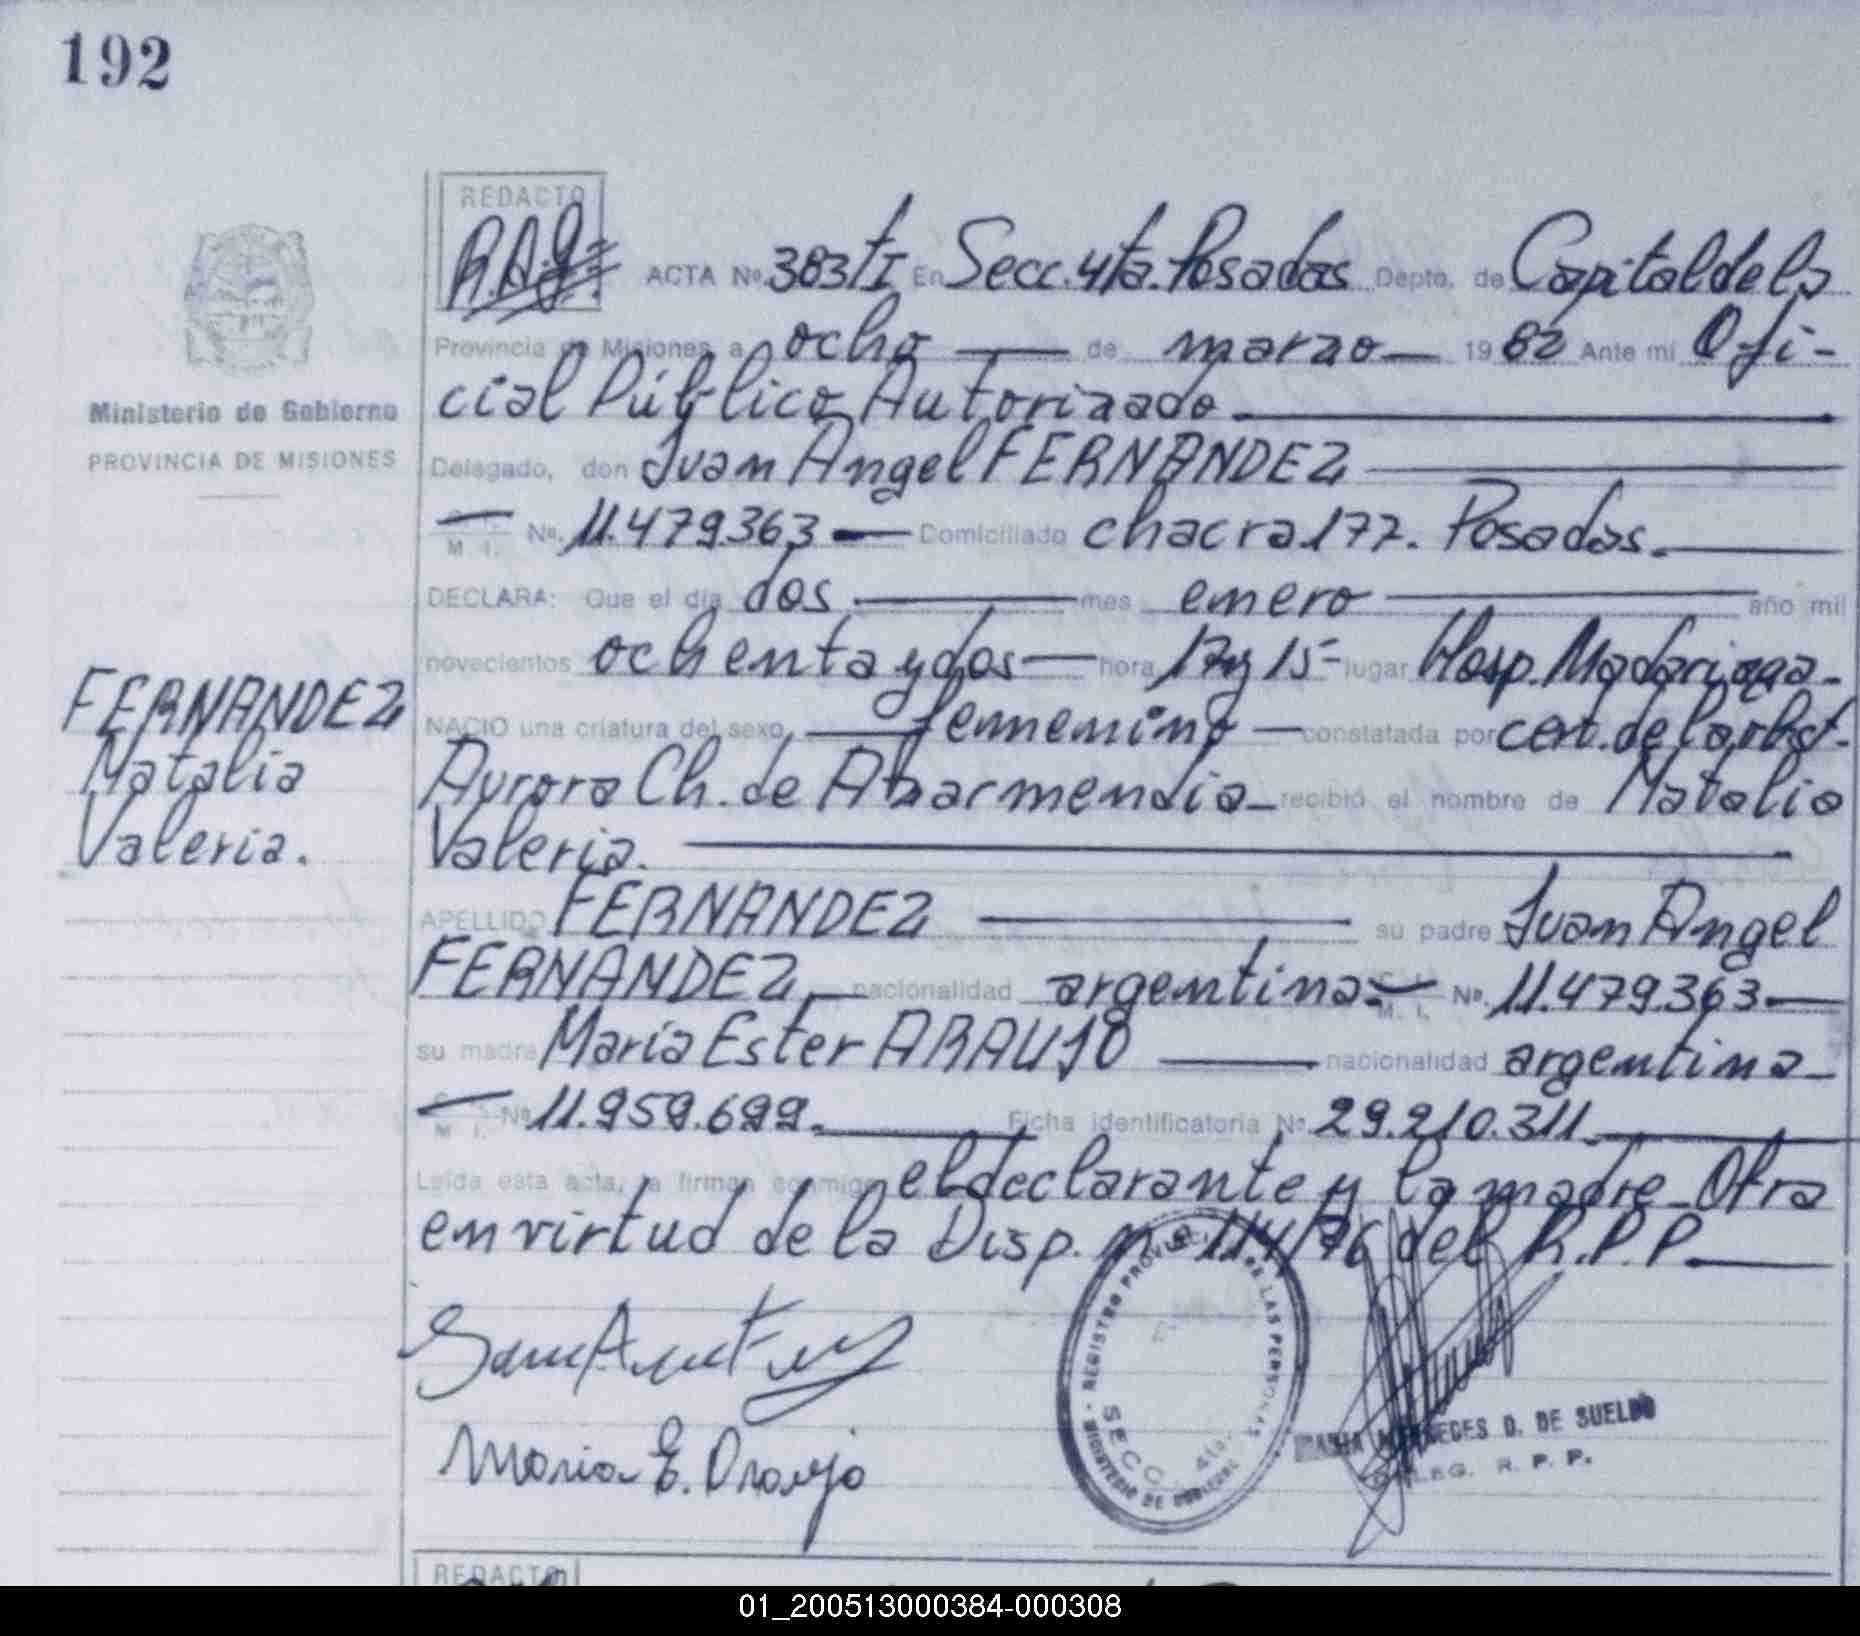 192
REDACTO
R.A.J.
ACTA Nº. 383/tI En Secc. 4ta. Posadas Depto. de Capital de la
Provincia de Misiones, a ocho de marzo 19 82 Ante mí Ofi-
cial Público Autorizado
Ministerio de Gobierno
PROVINCIA DE MISIONES
Delegado, don Juan Angel FERNANDEZ
M. I. Nº. 11.479.363 Domiciliado chacra 177. Posadas.
DECLARA: Que el día dos mes enero año mil
novecientos ochenta y dos hora 17 y 15- lugar Hosp. Madariaga-
NACIO una criatura del sexo femenino constatada por cert. de la obst.
Aurora Ch. de Azarmendia recibió el nombre de Natalia
Valeria.
FERNANDEZ
Natalia
Valeria.
APELLIDO FERNANDEZ su padre Juan Angel
FERNANDEZ, nacionalidad argentina. C. I. M. I. Nº. 11.479.363
su madre María Ester ARAUJO nacionalidad argentina
C. I. M. I. Nº 11.959.699. Ficha identificatoria Nº. 29.210.311.
Leída esta acta, la firman conmigo el declarante y la madre. Otra
en virtud de la Disp. nº 114/76 del R.P.P.
Maria E. Araujo
REGISTRO PROVINCIAL DE LAS PERSONAS
SECC. 4ta.
MINISTERIO DE GOBIERNO
MARIA MERCEDES D. DE SUELDO
DELEG. R. P. P.
REDACTO
01_200513000384-000308